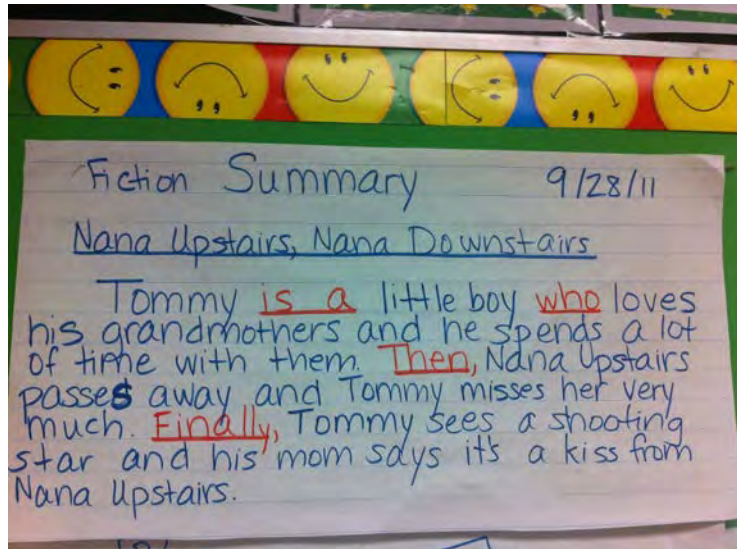 Fiction Summary 9/28/11
Nana Upstairs, Nana Downstairs
Tommy is a little boy who loves
his grandmothers and he spends a lot
of time with them. Then, Nana Upstairs
passes away and Tommy misses her very
much. Finally, Tommy sees a shooting
star and his mom says it's a kiss from
Nana Upstairs.